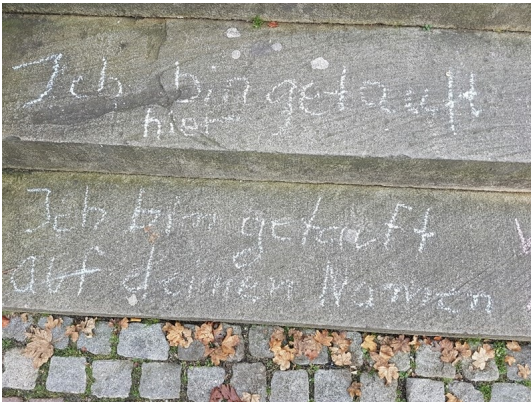 Ich bin getauft
hier
Ich bin getauft
auf deinen Namen